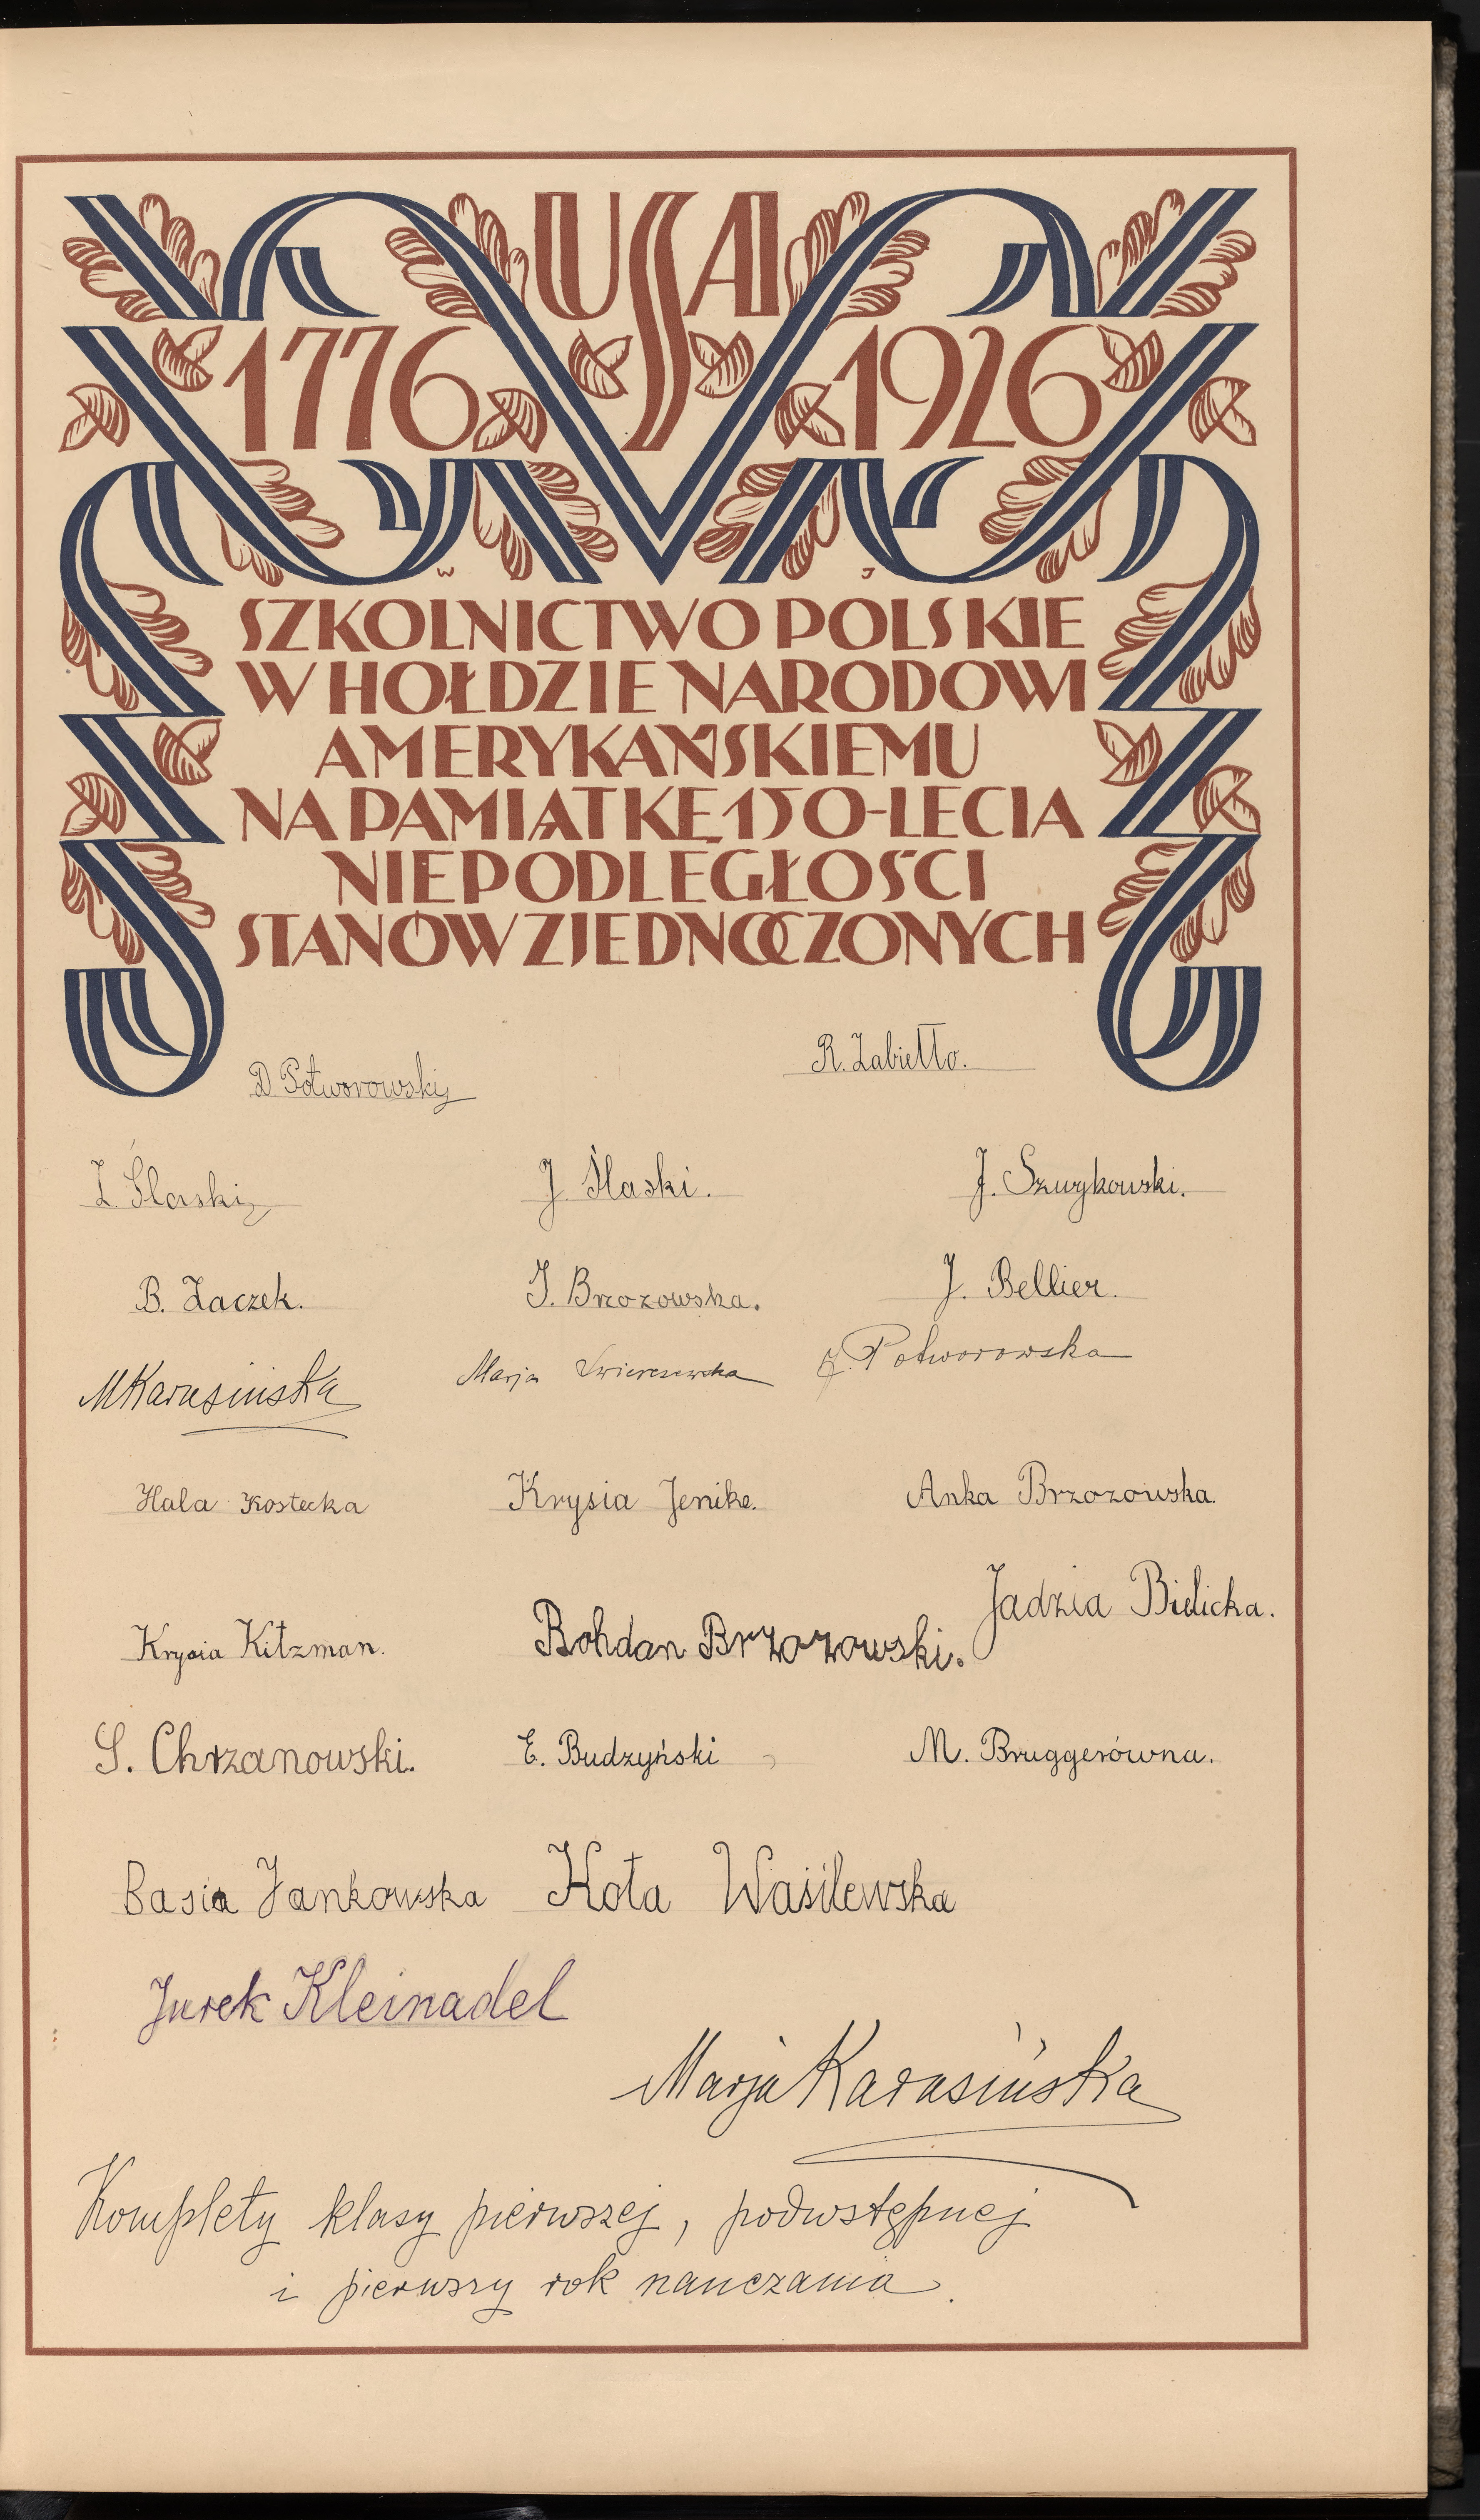 USA
1776 1926
W J
SZKOLNICTWO POLSKIE
W HOŁDZIE NARODOWI
AMERYKAŃSKIEMU
NA PAMIĄTKĘ 150-LECIA
NIEPODLEGŁOŚCI
STANÓW ZJEDNOCZONYCH
D. Potworowski R. Zabiełło.
Z. Ślaski J. Ślaski. J. Szwykowski.
B. Żaczek. I. Brzozowska. J. Bellier.
MKarasińska Marja Świerczewska Z. Potworowska
Hala Kostecka Krysia Jenike. Anka Brzozowska.
Krysia Kitzman. Bohdan Brzozowski. Jadzia Bielicka.
S. Chrzanowski. E. Budzyński M. Bruggerówna.
Basia Jankowska Kota Wasilewska
Jurek Kleinadel
Marja Karasińska
Komplety klasy pierwszej, podwstępnej
i pierwszy rok nauczania.